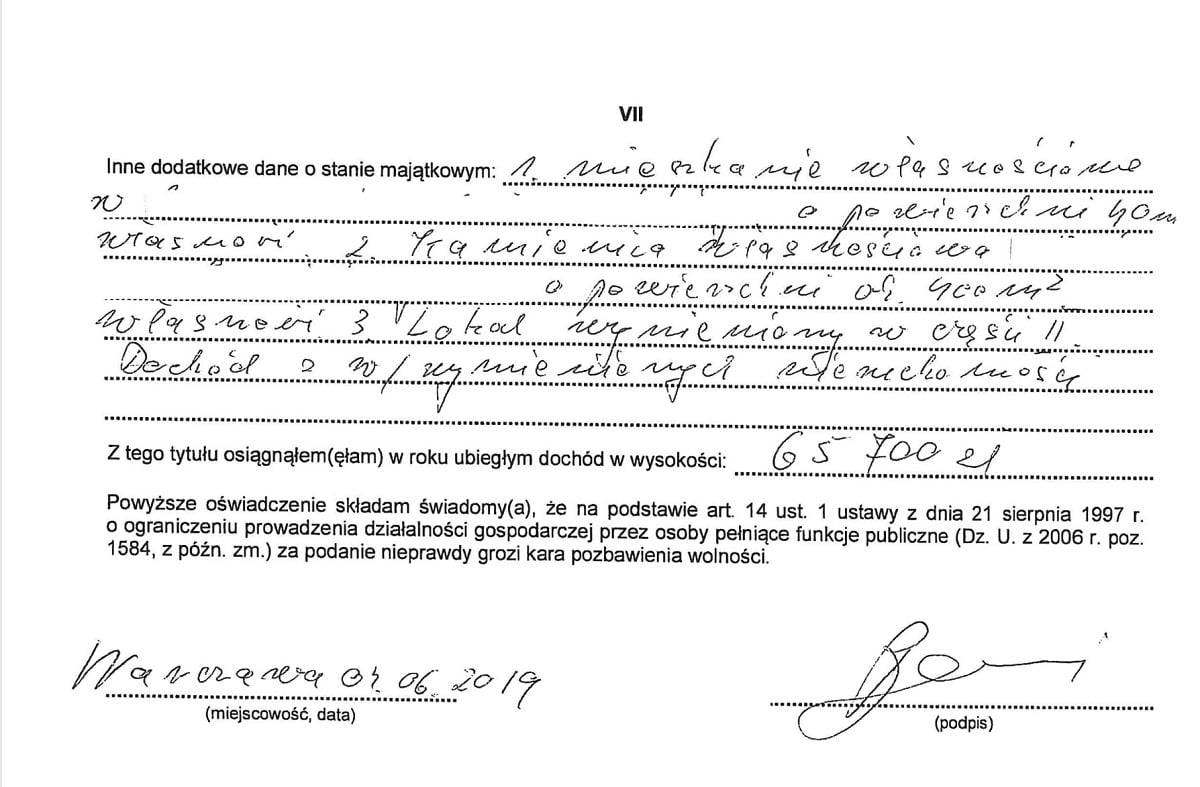 VII
Inne dodatkowe dane o stanie majątkowym: 1. mieszkanie własnościowe
w o powierzchni 40m
własność. 2. Kamienica własnościowa
o powierzchni ok. 400 m²
własność 3. Lokal wymieniony w części II.
Dochód z w/wymienionych nieruchomości
Z tego tytułu osiągnąłem(ęłam) w roku ubiegłym dochód w wysokości: 65 700 zł
Powyższe oświadczenie składam świadomy(a), że na podstawie art. 14 ust. 1 ustawy z dnia 21 sierpnia 1997 r.
o ograniczeniu prowadzenia działalności gospodarczej przez osoby pełniące funkcje publiczne (Dz. U. z 2006 r. poz.
1584, z późn. zm.) za podanie nieprawdy grozi kara pozbawienia wolności.
Warszawa 06.2019
(miejscowość, data)
(podpis)